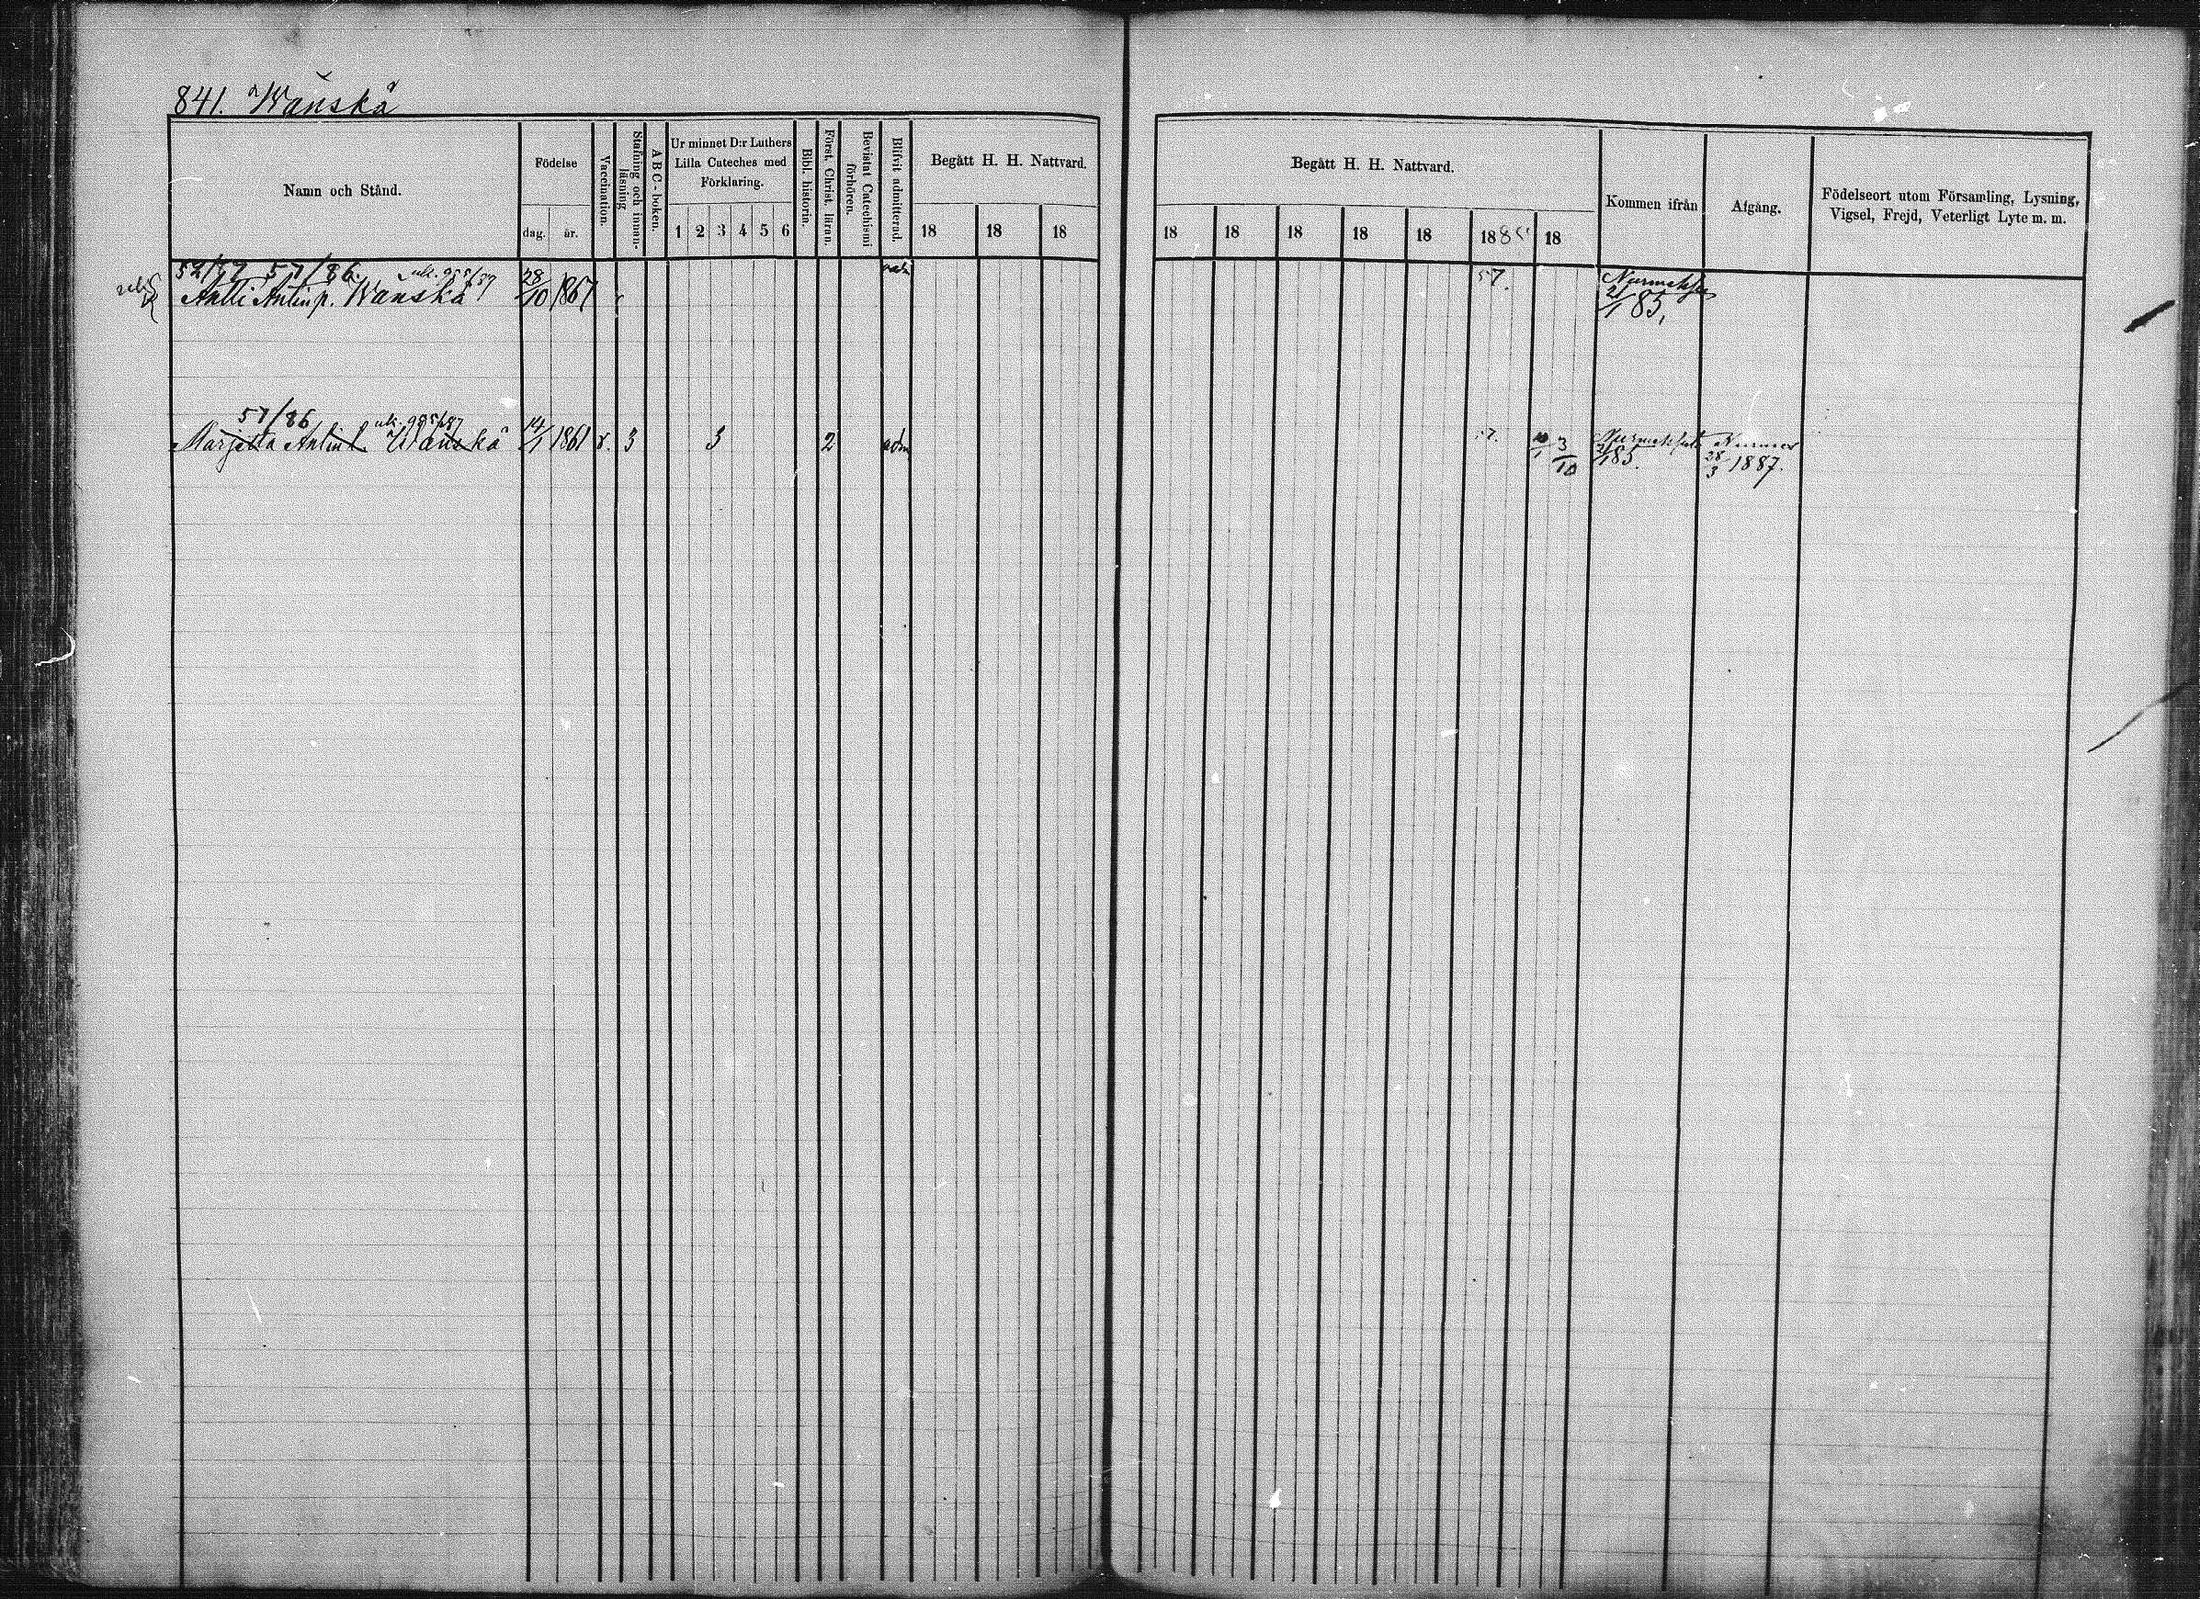 841. Wänskä
Namn och Stånd.
Födelse
dag. år.
Vaccination.
Stafning och innan-
läsning
ABC-boken.
Ur minnet D:r Luthers
Lilla Cateches med
Förklaring.
1 2 3 4 5 6
Bibl. historia.
Först. Christ. läran.
Bevistat Catechismi
förhören.
Blifvit admitterad.
Begått H. H. Nattvard.
18 18 18
Begått H. H. Nattvard.
18 18 18 18 18 1885 18
Kommen ifrån
Afgång.
Födelseort utom Församling, Lysning,
Vigsel, Frejd, Veterligt Lyte m. m.
57/86.
Antti Antinp. Wänskä 28/10 1867 57.
2/1 85,
57/86
Marjetta Antint. Wänskä 14/1 1861 v. 3 3 2 adm 57. 3/10
2/1 85. 28/3 1887.